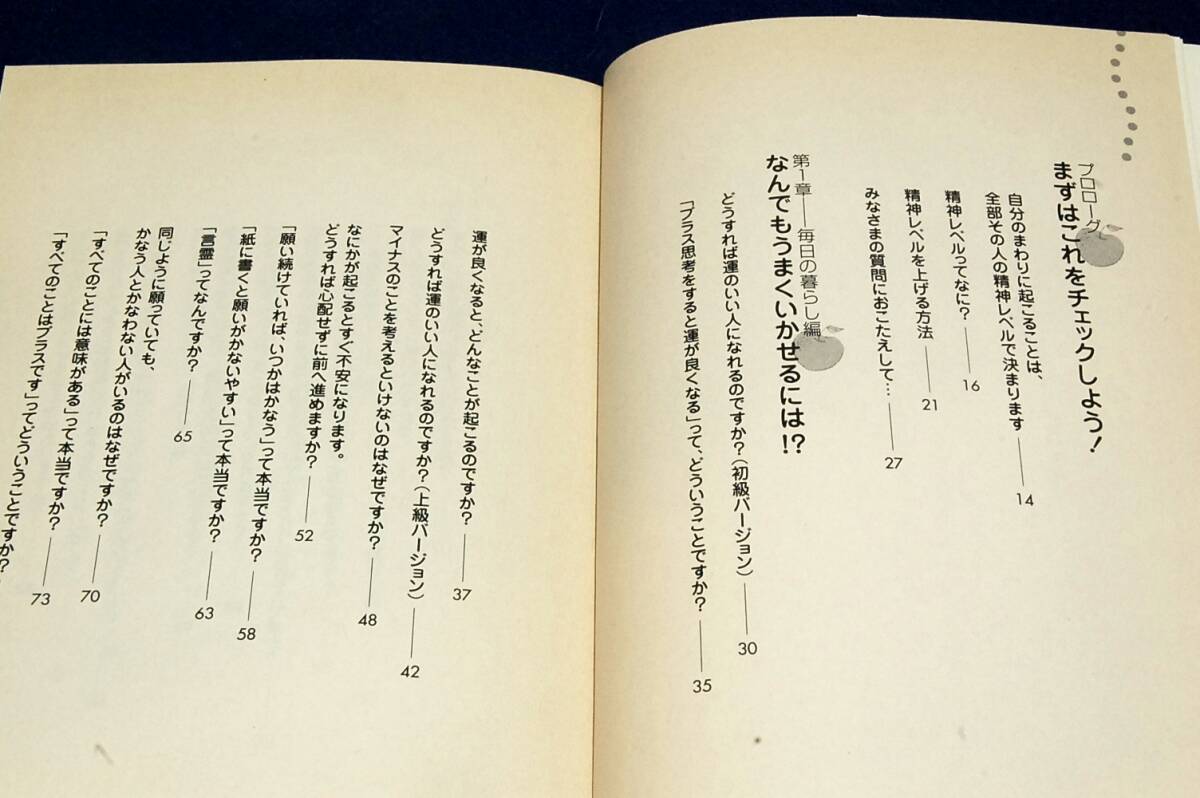 プロローグ
まずはこれをチェックしよう!
自分のまわりに起こることは、
全部その人の精神レベルで決まります――14
精神レベルってなに?――16
精神レベルを上げる方法――21
みなさまの質問におこたえして…――27
第1章――毎日の暮らし編
なんでもうまくいかせるには!?
どうすれば運のいい人になれるのですか?(初級バージョン)――30
「プラス思考をすると運が良くなる」って、どういうことですか?――35
運が良くなると、どんなことが起こるのですか?――37
どうすれば運のいい人になれるのですか?(上級バージョン)――42
マイナスのことを考えるといけないのはなぜですか?――48
なにかが起こるとすぐ不安になります。
どうすれば心配せずに前へ進めますか?――52
「願い続けていれば、いつかはかなう」って本当ですか?――58
「紙に書くと願いがかないやすい」って本当ですか?――63
「言霊」ってなんですか?――65
同じように願っていても、
かなう人とかなわない人がいるのはなぜですか?――70
「すべてのことには意味がある」って本当ですか?――73
「すべてのことはプラスです」ってどういうことですか?